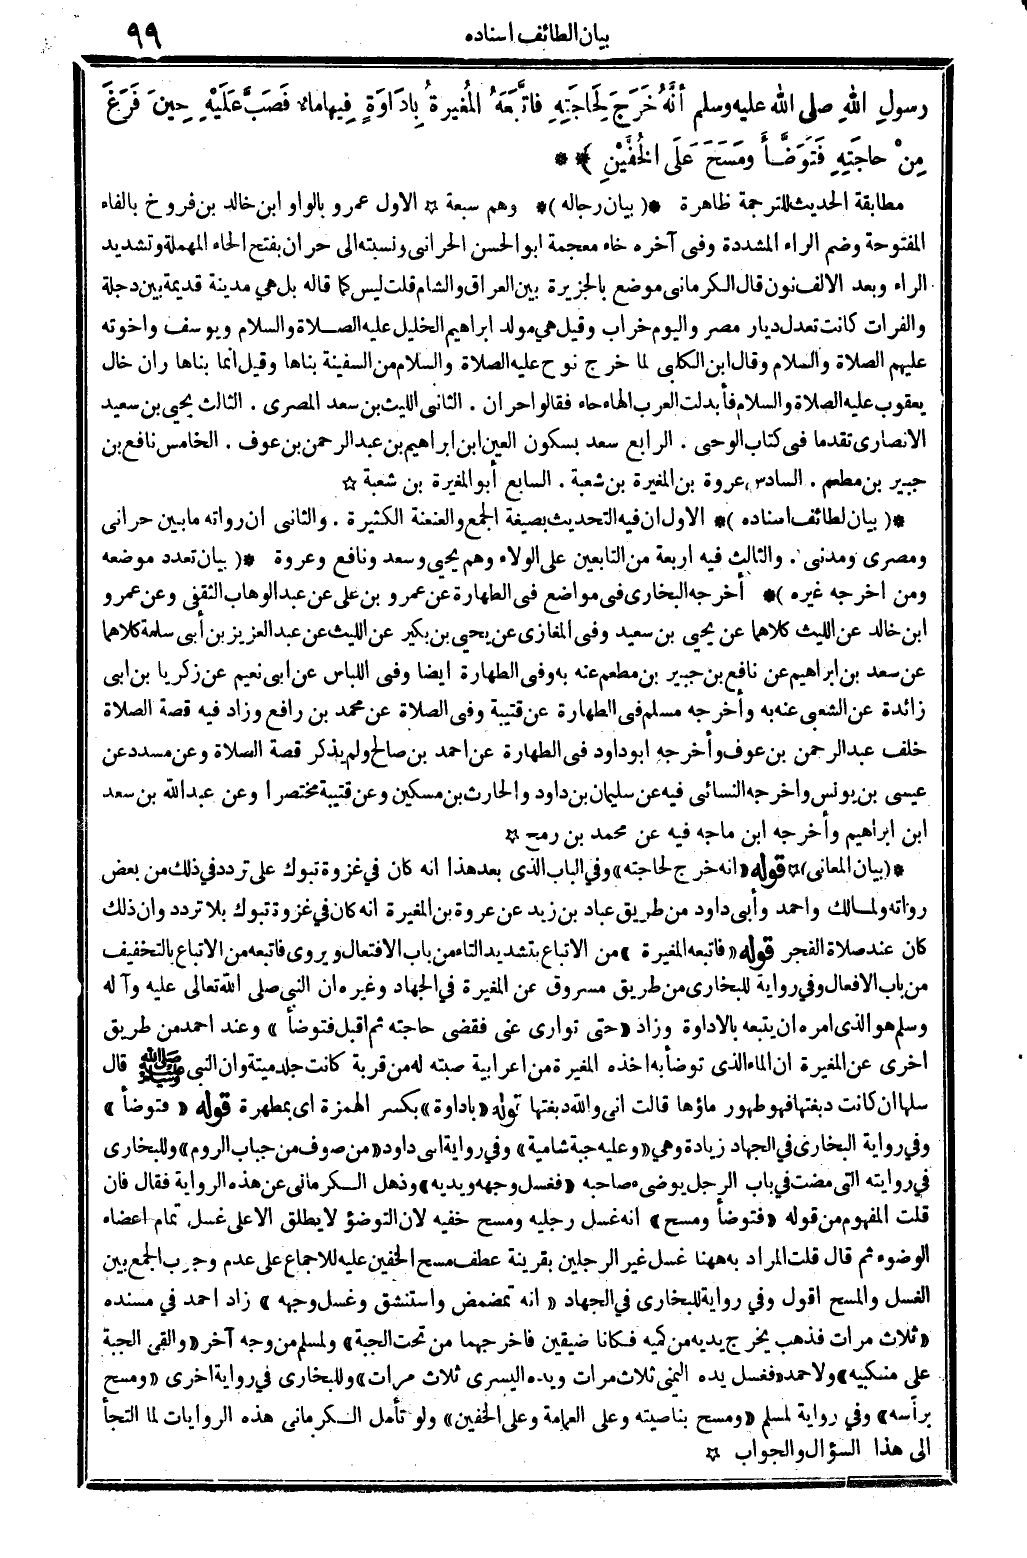 بيان الطائف اسناده
٩٩
رسولِ اللهِ صلى الله عليه وسلم أنَّهُ خَرَجَ لِحَاجَتِهِ فاتَّبَعَهُ المُغِيرَةُ بِادَاوَةٍ فِيها ماءٌ فَصَبَّ عَلَيْهِ حِينَ فَرَغَ
مِنْ حاجَتِهِ فَتَوَضَّأَ ومَسَحَ عَلَى الخُفَّيْنِ ﴾ *
مطابقة الحديث للترجمة ظاهرة *( بيان رجاله )* وهم سبعة ☆ الاول عمرو بالواو ابن خالد بن فروخ بالفاء
المفتوحة وضم الراء المشددة وفى آخره خاء معجمة ابو الحسن الحرانى ونسبته الى حران بفتح الحاء المهملة وتشديد
الراء وبعد الالف نون قال الكرمانى موضع بالجزيرة بين العراق والشام قلت ليس كما قاله بل هى مدينة قديمة بين دجلة
والفرات كانت تعدل ديار مصر واليوم خراب وقيل هى مولد ابراهيم الخليل عليه الصلاة والسلام ويوسف واخوته
عليهم الصلاة والسلام وقال ابن الكلبى لما خرج نوح عليه الصلاة والسلام من السفينة بناها وقيل انما بناها ران خال
يعقوب عليه الصلاة والسلام فأبدلت العرب الهاء حاء فقالوا حران . الثانى الليث بن سعد المصرى . الثالث يحيى بن سعيد
الانصارى تقدما فى كتاب الوحى . الرابع سعد بسكون العين ابن ابراهيم بن عبد الرحمن بن عوف . الخامس نافع بن
جبير بن مطعم . السادس عروة بن المغيرة بن شعبة . السابع أبو المغيرة بن شعبة ☆
*( بيان لطائف اسناده )* الاول ان فيه التحديث بصيغة الجمع والعنعنة الكثيرة . والثانى ان رواته ما بين حرانى
ومصرى ومدنى . والثالث فيه اربعة من التابعين على الولاء وهم يحيى وسعد ونافع وعروة *( بيان تعدد موضعه
ومن اخرجه غيره )* أخرجه البخارى فى مواضع فى الطهارة عن عمرو بن على عن عبد الوهاب الثقفى وعن عمرو
ابن خالد عن الليث كلاهما عن يحيى بن سعيد وفى المغازى عن يحيى بن بكير عن الليث عن عبد العزيز بن أبى سلمة كلاهما
عن سعد بن ابراهيم عن نافع بن جبير بن مطعم عنه به وفى الطهارة ايضا وفى اللباس عن ابى نعيم عن زكريا بن ابى
زائدة عن الشعبى عنه به وأخرجه مسلم فى الطهارة عن قتيبة وفى الصلاة عن محمد بن رافع وزاد فيه قصة الصلاة
خلف عبد الرحمن بن عوف وأخرجه ابو داود فى الطهارة عن احمد بن صالح ولم يذكر قصة الصلاة وعن مسدد عن
عيسى بن يونس واخرجه النسائى فيه عن سليمان بن داود والحارث بن مسكين وعن قتيبة مختصرا وعن عبد الله بن سعد
ابن ابراهيم وأخرجه ابن ماجه فيه عن محمد بن رمح ☆
*( بيان المعانى )☆ قوله «انه خرج لحاجته» وفي الباب الذى بعد هذا انه كان في غزوة تبوك على تردد في ذلك من بعض
رواته ولمالك واحمد وأبى داود من طريق عباد بن زيد عن عروة بن المغيرة انه كان في غزوة تبوك بلا تردد وان ذلك
كان عند صلاة الفجر قوله «فاتبعه المغيرة» من الاتباع بتشديد التاء من باب الافتعال ويروى فاتبعه من الاتباع بالتخفيف
من باب الافعال وفي رواية للبخارى من طريق مسروق عن المغيرة في الجهاد وغيره ان النبى صلى الله تعالى عليه وآله
وسلم هو الذى امره ان يتبعه بالاداوة وزاد «حتى توارى عنى فقضى حاجته ثم اقبل فتوضأ» وعند احمد من طريق
اخرى عن المغيرة ان الماء الذى توضأ به اخذه المغيرة من اعرابية صبته له من قربة كانت جلد ميتة وان النبى ﷺ قال
سلها ان كانت دبغتها فهو طهور ماؤها قالت انى والله دبغتها قوله «باداوة» بكسر الهمزة اى بمطهرة قوله «فتوضأ»
وفي رواية البخارى في الجهاد زيادة وهي «وعليه جبة شامية» وفي رواية ابى داود «من صوف من جباب الروم» وللبخارى
في روايته التى مضت في باب الرجل يوضىء صاحبه «فغسل وجهه ويديه» وذهل الكرمانى عن هذه الرواية فقال فان
قلت المفهوم من قوله «فتوضأ ومسح» انه غسل رجليه ومسح خفيه لان التوضؤ لا يطلق الا على غسل تمام اعضاء
الوضوء ثم قال قلت المراد به ههنا غسل غير الرجلين بقرينة عطف مسح الخفين عليه للاجماع على عدم وجوب الجمع بين
الغسل والمسح اقول وفي رواية للبخارى في الجهاد «انه تمضمض واستنشق وغسل وجهه» زاد احمد في مسنده
«ثلاث مرات فذهب يخرج يديه من كميه فكانا ضيقين فاخرجهما من تحت الجبة» ولمسلم من وجه آخر «والقى الجبة
على منكبيه» ولاحمد «فغسل يده اليمنى ثلاث مرات ويده اليسرى ثلاث مرات» وللبخارى في رواية اخرى «ومسح
برأسه» وفي رواية لمسلم «ومسح بناصيته وعلى العمامة وعلى الخفين» ولو تأمل الكرمانى هذه الروايات لما التجأ
الى هذا السؤال والجواب ☆